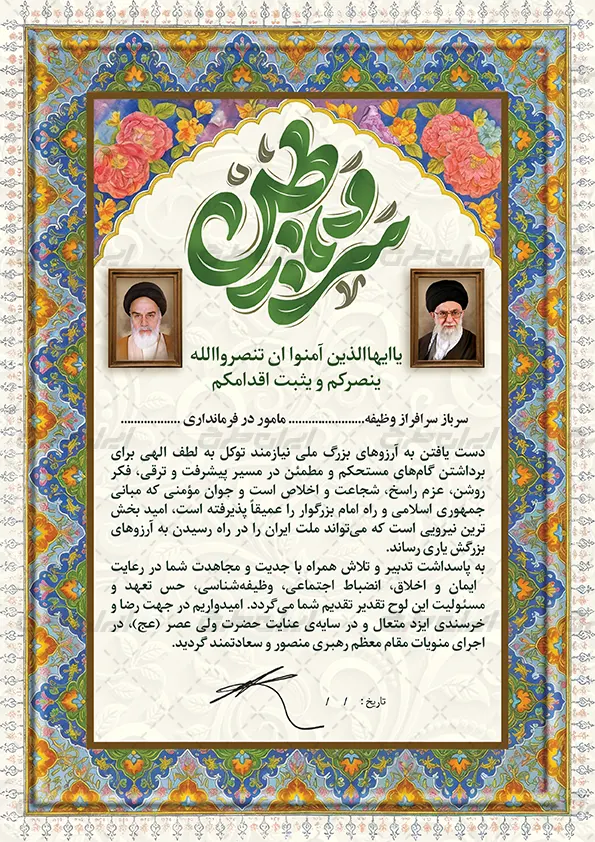 سرباز وطن
یاایهاالذین آمنوا ان تنصرواالله
ینصرکم و یثبت اقدامکم
سرباز سرافراز وظیفه....................... مامور در فرمانداری ..................
دست یافتن به آرزوهای بزرگ ملی نیازمند توکل به لطف الهی برای
برداشتن گام‌های مستحکم و مطمئن در مسیر پیشرفت و ترقی، فکر
روشن، عزم راسخ، شجاعت و اخلاص است و جوان مؤمنی که مبانی
جمهوری اسلامی و راه امام بزرگوار را عمیقاً پذیرفته است، امید بخش
ترین نیرویی است که می‌تواند ملت ایران را در راه رسیدن به آرزوهای
بزرگش یاری رساند.
به پاسداشت تدبیر و تلاش همراه با جدیت و مجاهدت شما در رعایت
ایمان و اخلاق، انضباط اجتماعی، وظیفه‌شناسی، حس تعهد و
مسئولیت این لوح تقدیر تقدیم شما می‌گردد. امیدواریم در جهت رضا و
خرسندی ایزد متعال و در سایه‌ی عنایت حضرت ولی عصر (عج)، در
اجرای منویات مقام معظم رهبری منصور و سعادتمند گردید.
تاریخ: / /